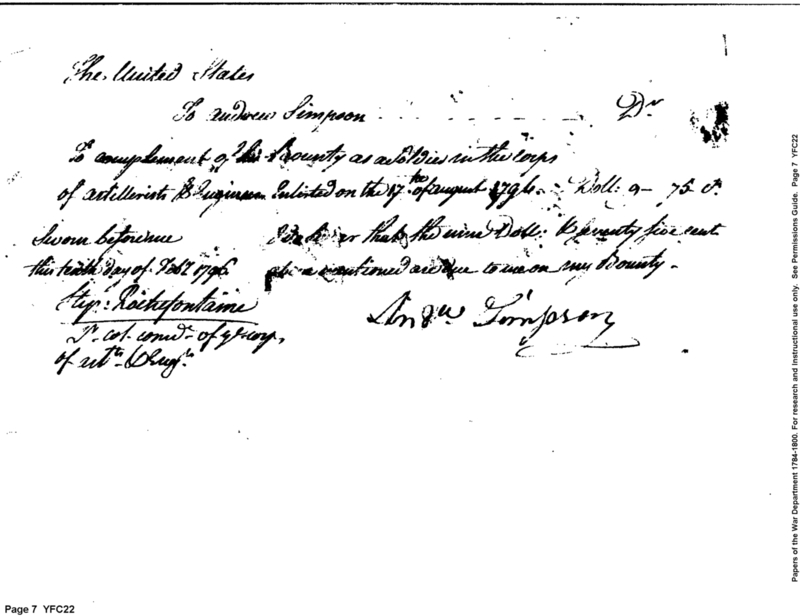 The United States
To Andrew Simpson Dr
To complement of his Bounty as a Soldier in the Corps
of artillerists & Engineers Enlisted on the 17th of august 179 Doll: 9 - 75 ct.
Sworn before me
this tenth day of Feby 1796
I do swear that the nine Doll: Seventy five cent
above mentioned are due to me on my Bounty.
Step: Rochefontaine
Lt. col. comdt of ye corps
of artts & Engrs.
Andw Simpson
Page 7 YFC22
Papers of the War Department 1784-1800. For research and Instructional use only. See Permissions Guide. Page 7 YFC22